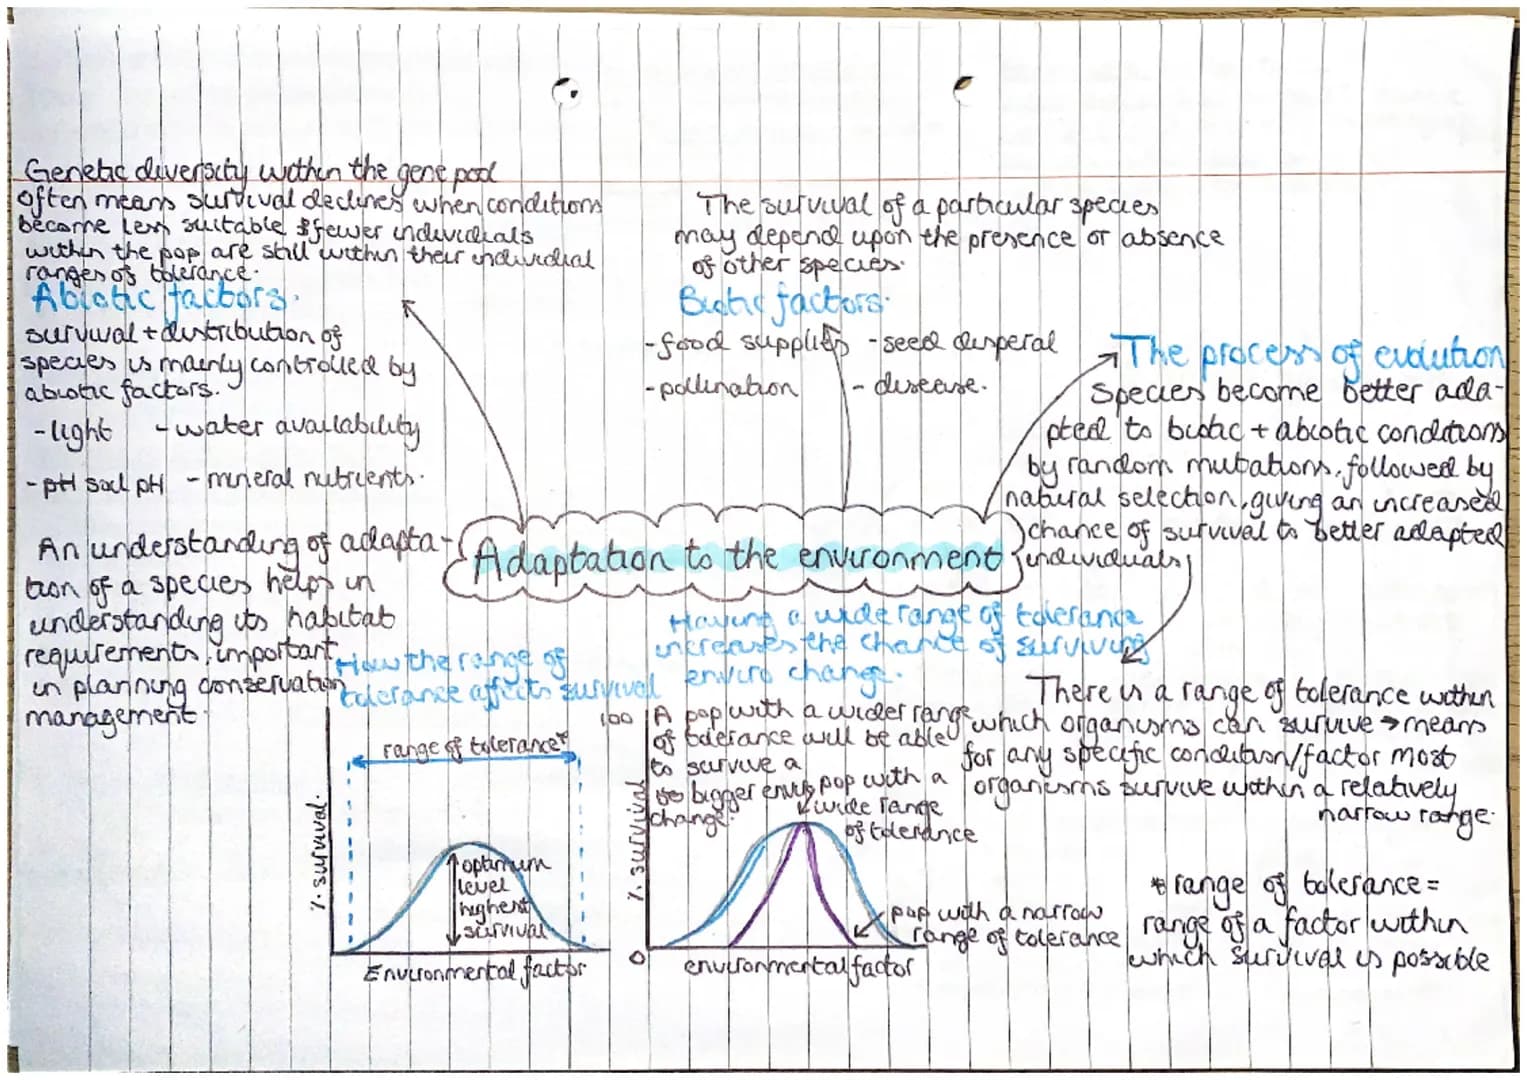 Genetic diversity within the gene pool
often means survival declines when conditions
become less suitable & fewer individuals
within the pop are still within their individual
ranges of tolerance.
Abiotic factors.
survival + distribution of
species is mainly controlled by
abiotic factors.
-light -water availability
-pH soil pH - mineral nutrients.
The survival of a particular species
may depend upon the presence or absence
of other species.
Biotic factors.
-food supplies -seed disperal
-pollination - disease.
The process of evolution
Species become better ada-
pted to biotic + abiotic conditions
by random mutations, followed by
natural selection, giving an increased
chance of survival to better adapted
individuals
Adaptation to the environment
An understanding of adapta-
tion of a species helps in
understanding its habitat
requirements, important
in planning conservation
management.
How the range of
tolerance affects survival
range of tolerance*
% survival
optimum
level
highest
survival
Environmental factor
Having a wide range of tolerance
increases the chance of surviving
enviro change.
100
A pop with a wider range
of tolerance will be able
to survive a
bigger enviro
change.
pop with a
wide range
of tolerance
% survival
pop with a narrow
range of tolerance
0
environmental factor
There is a range of tolerance within
which organisms can survive → means
for any specific condition/factor most
organisms survive within a relatively
narrow range.
* range of tolerance =
range of a factor within
which survival is possible